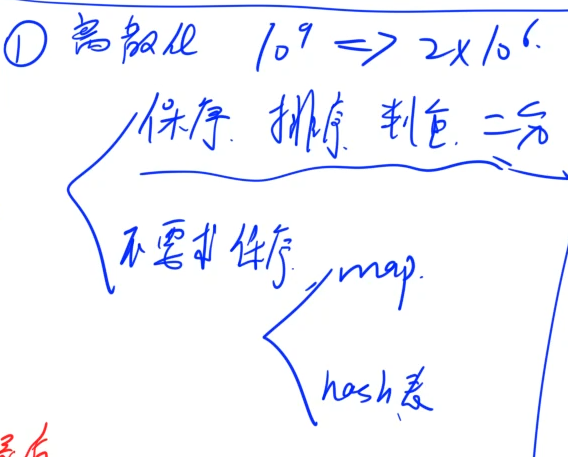 ① 离散化 10⁹ => 2x10⁶.
保序. 排序 判重. 二分
不要求保序.
map.
hash表
最后